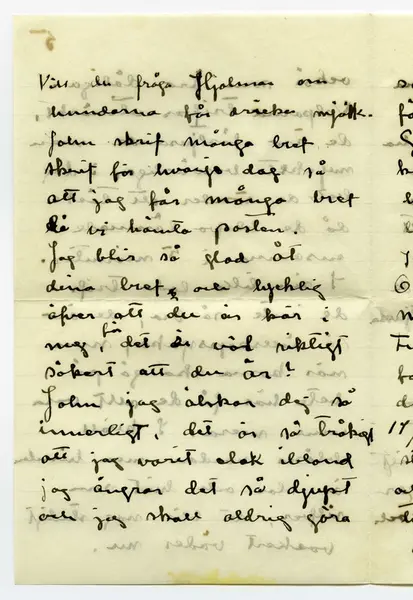 5
Vill du fråga Hjalmar om
hundarna får dricka mjölk.
John skrif många bref
skrif för hvarje dag så
att jag får många bref
då vi hämta posten.
Jag blir så glad åt
dina bref, och lycklig
öfver att du är kär i
mej, för det är väl riktigt
säkert att du är?
John jag älskar dej så
innerligt, det är så tråkigt
att jag varit elak ibland
jag ångrar det så djupt
och jag skall aldrig göra